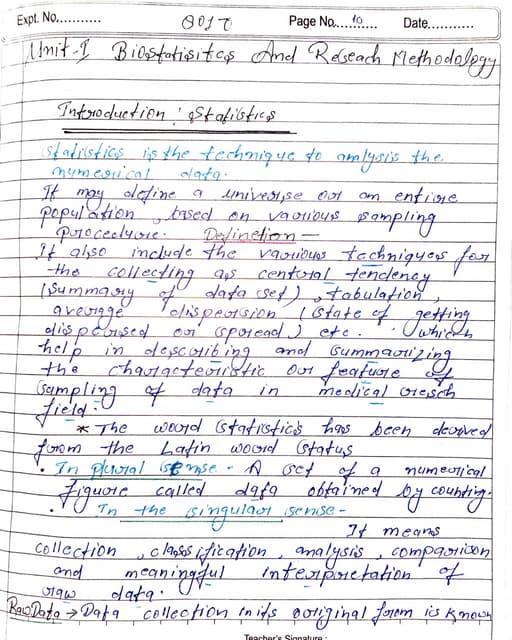 Expt. No............ 801T Page No........10 Date............
Unit-I Biostatisitcs And Reseach Methodology
Introduction : Statistics
Statistics is the technique to analysis the
numerical data.
It may define a universe or an entire
population, based on various sampling
procedure. Definetion —
It also include the various techniques for
the collecting as central tendency
(summary of data set), tabulation,
average dispersion (state of getting
dispersed or spread) etc. which
help in describing and summarizing
the characteristic or feature of
sampling of data in medical resch
field.
* The word statistics has been derived
from the Latin word status
• In plural sense - A set of a numerical
figure called data obtained by counting.
• In the singular sense-
It means
collection, classification, analysis, comparison
and meaningful interpretation of
raw data.
Raw Data → Data collection in its original form is known
Teacher's Signature :